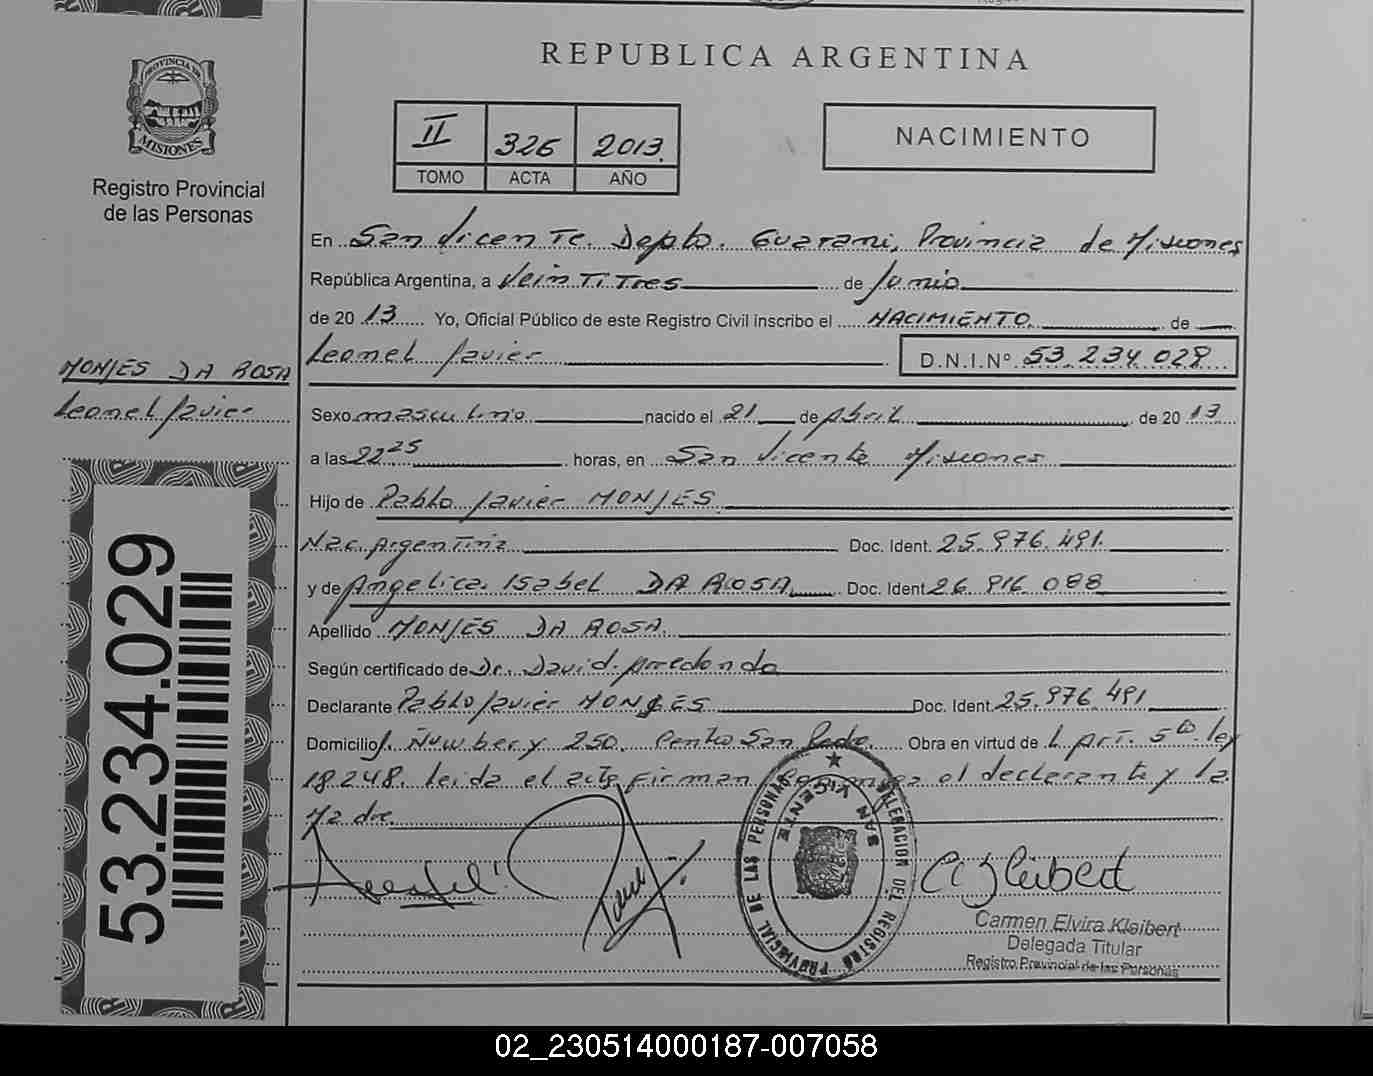 REPUBLICA ARGENTINA
PROVINCIA DE
MISIONES
Registro Provincial
de las Personas
II 326 2013.
TOMO ACTA AÑO
NACIMIENTO
En San Vicente. Depto. Guarani, Provincia de Misiones
República Argentina, a Veintitres de Junio
de 20 13 Yo, Oficial Público de este Registro Civil inscribo el NACIMIENTO de
Leonel Javier D.N.I.Nº 53.234.029
MONJES DA ROSA
Leonel Javier
Sexo masculino nacido el 21 de Abril de 20 13
a las 22 25 horas, en San Vicente Misiones
Hijo de Pablo Javier MONJES
Nac. Argentina Doc. Ident. 25.976.491.
y de Angelica Isabel DA ROSA Doc. Ident 26.816.088
Apellido MONJES DA ROSA.
Según certificado de Dr. David Arredondo
Declarante Pablo Javier MONJES Doc. Ident. 25.976.491
Domicilio J. Ñuwbery 250. Centro San Pedro. Obra en virtud de L. Art. 5to ley
18.248. leida el acta firman conmigo el declarante y la
Madre.
53.234.029
DELEGACION DEL REGISTRO PROVINCIAL DE LAS PERSONAS
SAN VICENTE
C E Kleibert
Carmen Elvira Kleibert
Delegada Titular
Registro Provincial de las Personas
02_230514000187-007058